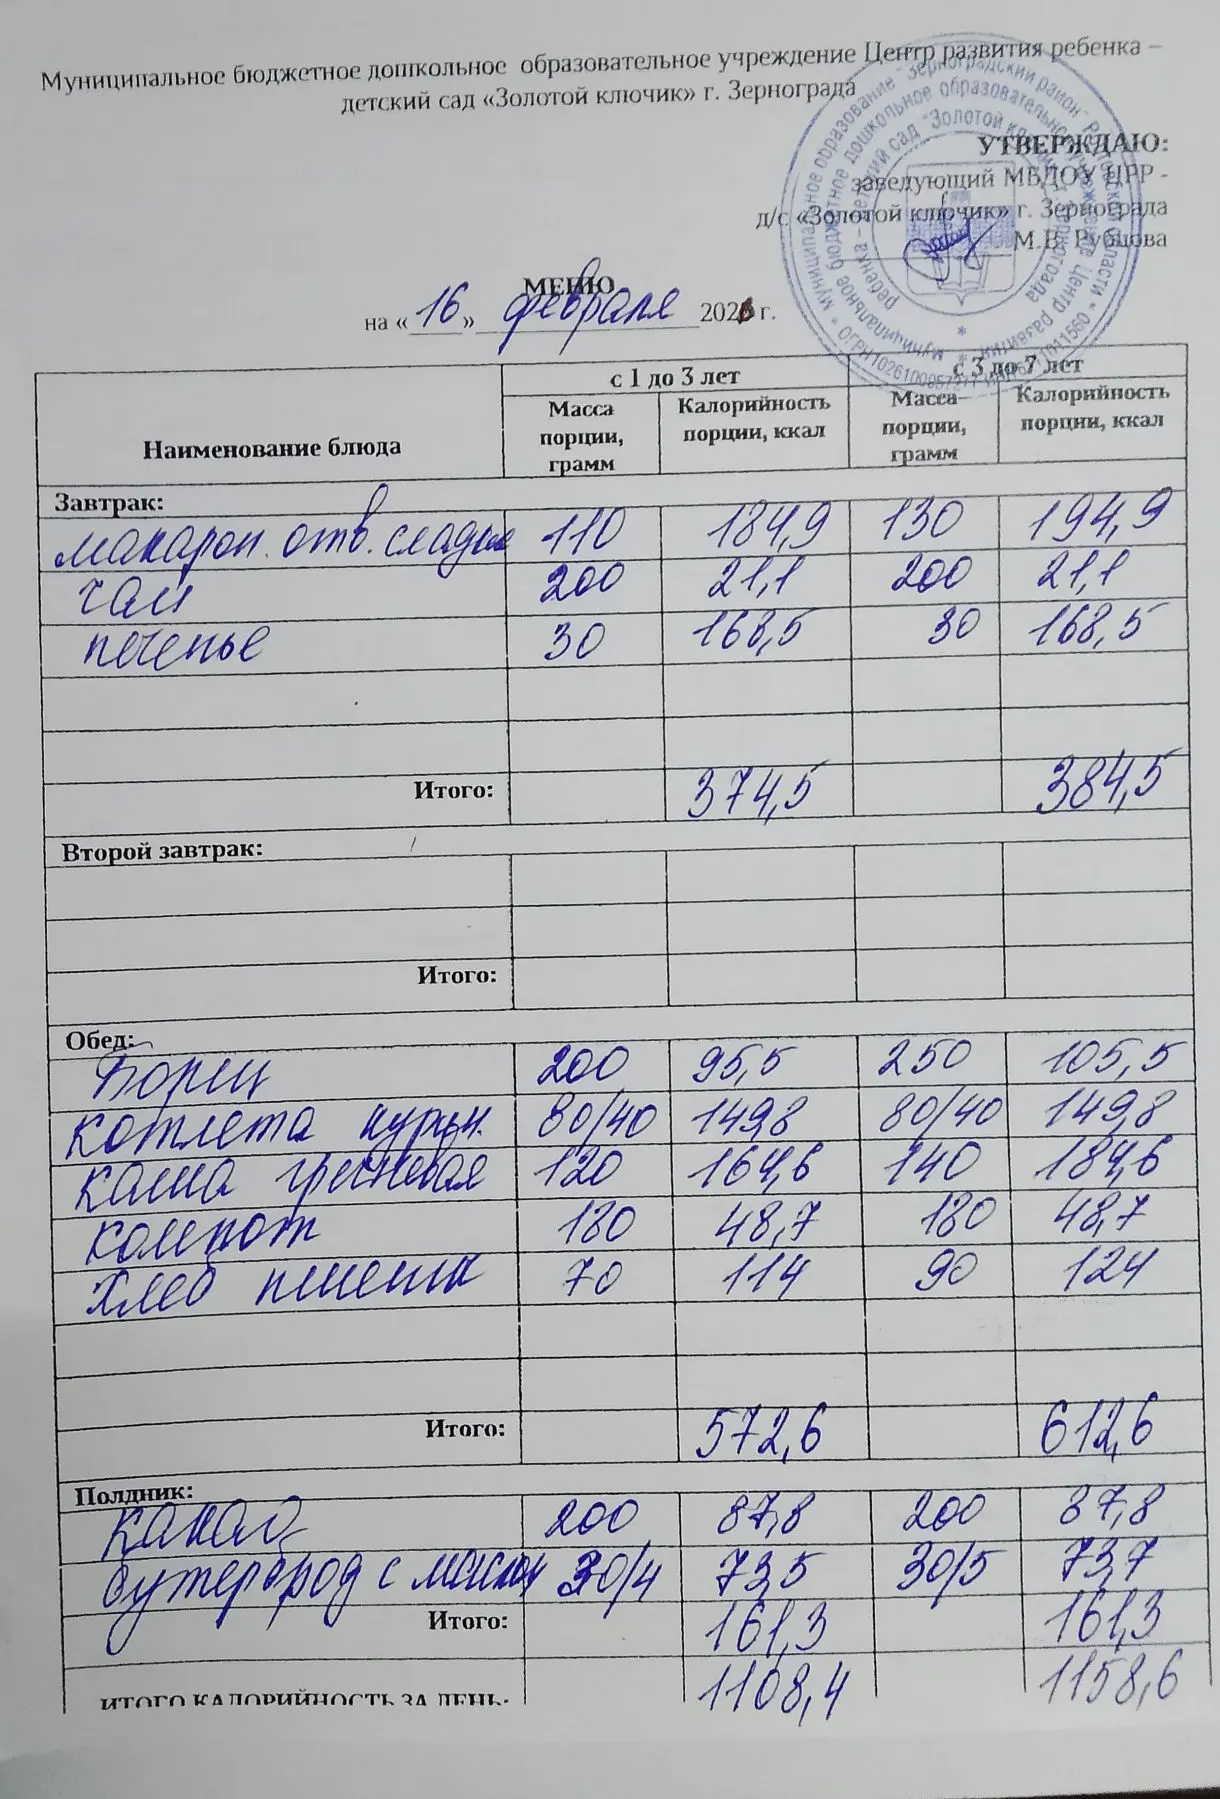 Муниципальное бюджетное дошкольное образовательное учреждение Центр развития ребенка –
детский сад «Золотой ключик» г. Зернограда
УТВЕРЖДАЮ:
заведующий МБДОУ ЦРР -
д/с «Золотой ключик» г. Зернограда
М.В. Рубцова
МЕНЮ
на « 16 » февраля 2026 г.
с 1 до 3 лет с 3 до 7 лет
Наименование блюда Масса порции, грамм Калорийность порции, ккал Масса порции, грамм Калорийность порции, ккал
Завтрак:
макарон. отв. сладкие 110 184,9 130 194,9
чай 200 21,1 200 21,1
печенье 30 168,5 30 168,5
Итого: 374,5 384,5
Второй завтрак:
Итого:
Обед:
Борщ 200 95,5 250 105,5
котлета курин. 80/40 149,8 80/40 149,8
каша гречневая 120 164,6 140 184,6
компот 180 48,7 180 48,7
хлеб пшенич 70 114 90 124
Итого: 572,6 612,6
Полдник:
Какао 200 87,8 200 87,8
бутерброд с маслом 30/4 73,5 30/5 73,7
Итого: 161,3 161,3
ИТОГО КАЛОРИЙНОСТЬ ЗА ДЕНЬ: 1108,4 1158,6